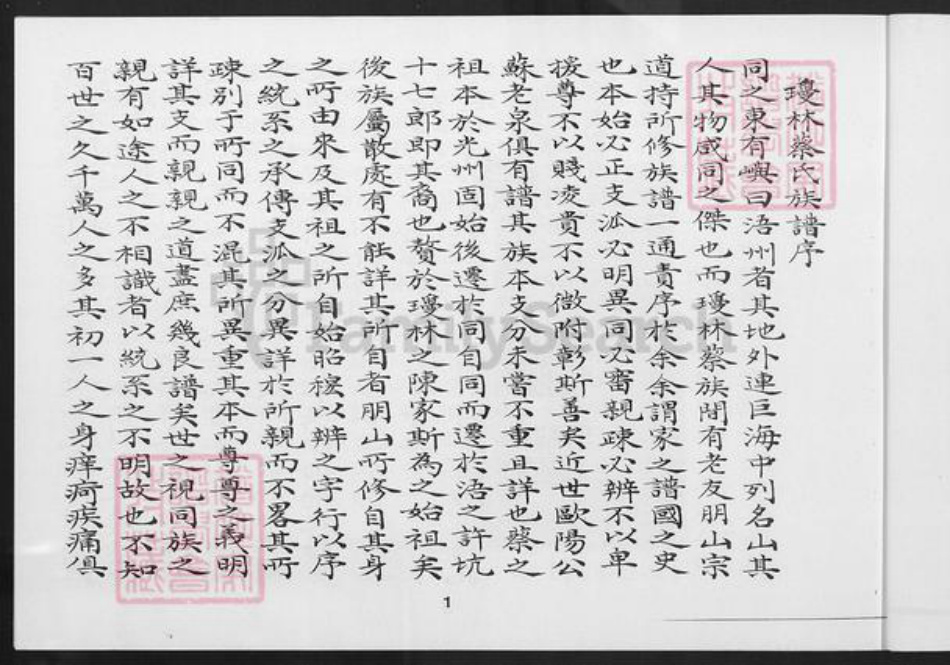 瓊林蔡氏族譜序
同之東有嶼曰浯州者其地外連巨海中列名山其
人其物咸同之傑也而瓊林蔡族間有老友朋山宗
道持所修族譜一通責序於余余謂家之譜國之史
也本始必正支泒必明異同必審親疎必辨不以卑
援尊不以賤凌貴不以微附彰斯善矣近世歐陽公
蘇老泉俱有譜其族本支分未嘗不重且詳也蔡之
祖本於光州固始後遷於同自同而遷於浯之許坑
十七郎即其裔也贅於瓊林之陳家斯為之始祖矣
後族屬散處有不能詳其所自者朋山所修自其身
之所由來及其祖之所自始昭穆以辨之字行以序
之統系之承傳支泒之分異詳於所親而不畧其所
疎別于所同而不混其所異重其本而尊尊之義明
詳其支而親親之道盡庶幾良譜矣世之視同族之
親有如途人之不相識者以統系之不明故也不知
百世之久千萬人之多其初一人之身痒痾疾痛俱
1
FamilySearch